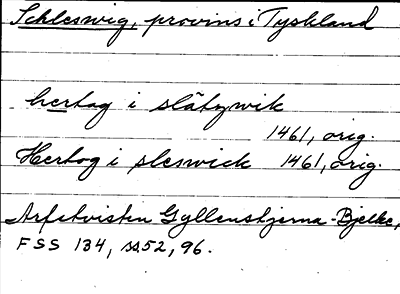 Schleswig, provins i Tyskland
hertog i slätzwik
1461, orig.
Hertog i sleswick 1461, orig.
Arfstvisten Gyllenstjerna-Bjelke,
FSS 134, ss 52, 96.